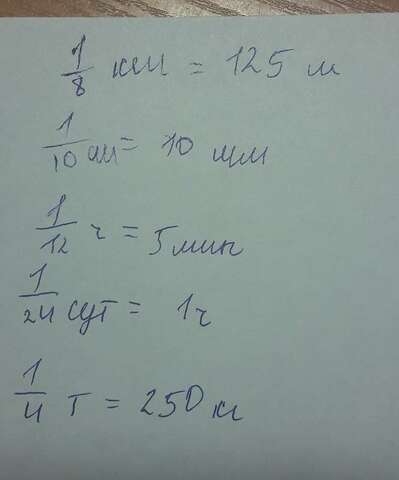 1/8 км = 125 м
1/10 см = 10 мм
1/12 ч = 5 мин
1/24 сут = 1ч
1/4 т = 250 кг